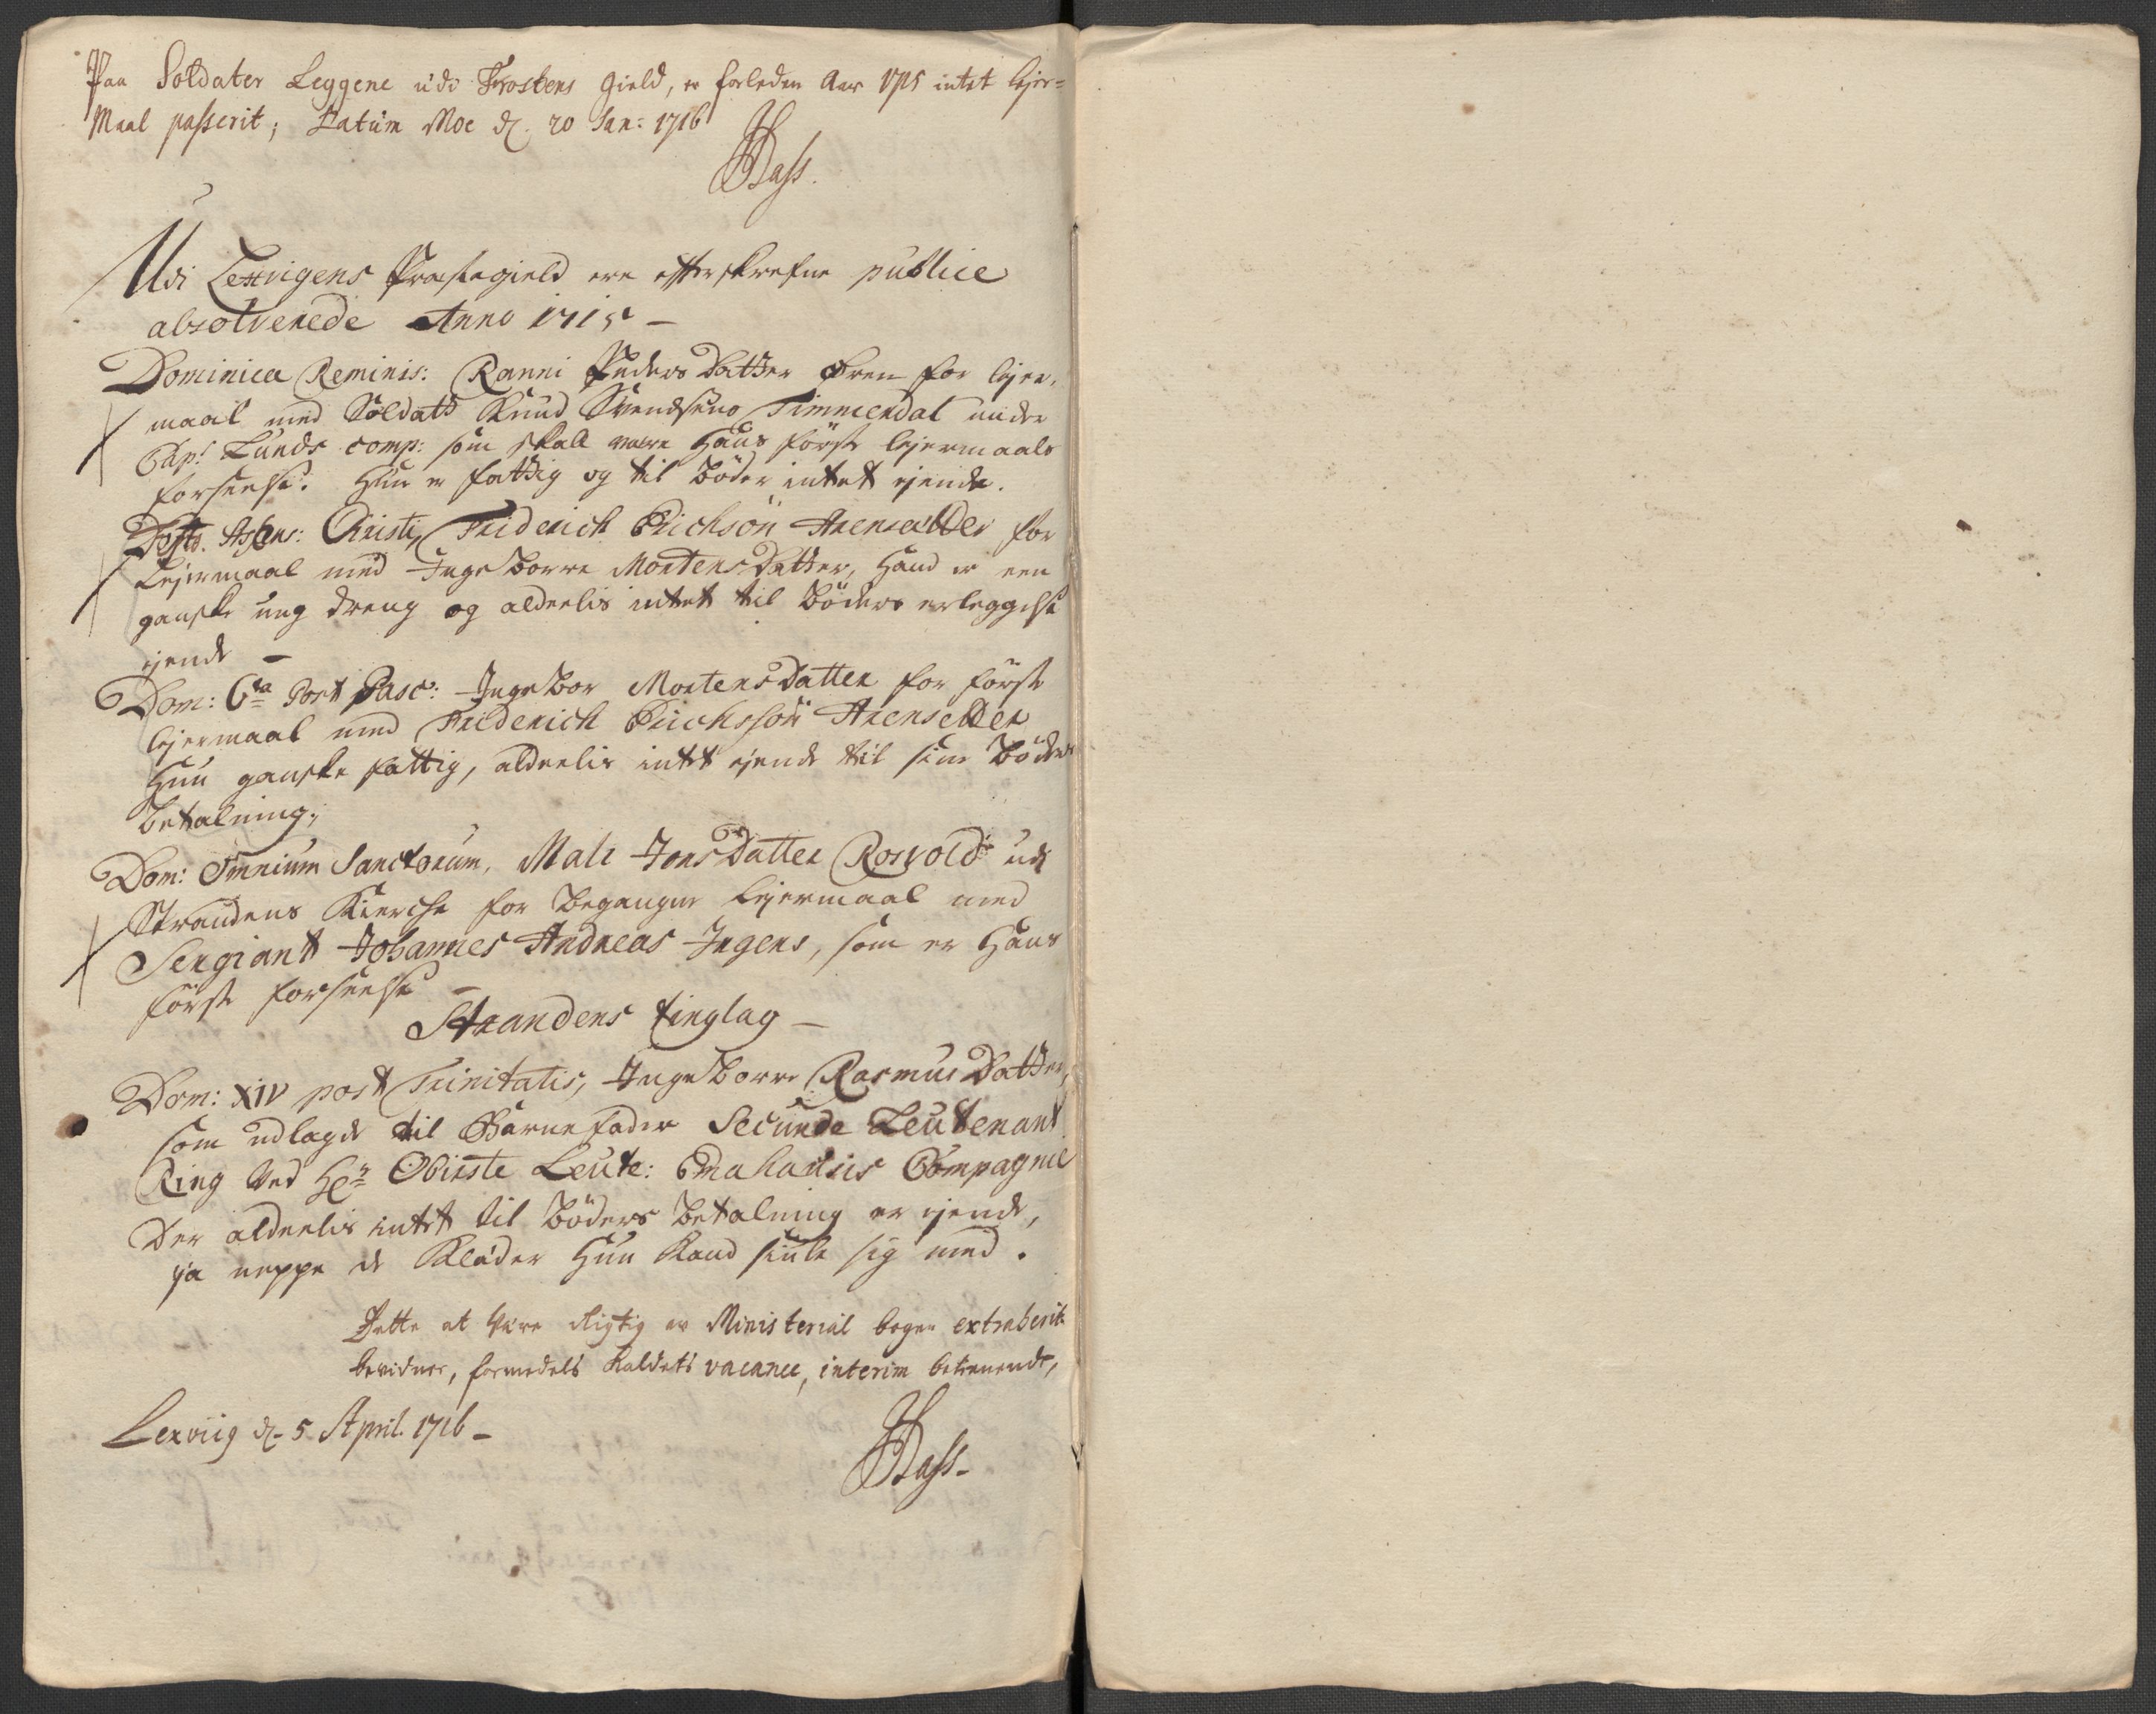 Paa Soldater Leggene udi Frostens gield, er forleden Aar 1715 intet lejer=
Maal passerit; Datum Moe d. 20 Jan: 1716
HDass.
Udi Lexvigens Præstegield ere efterskrefne publice
absolverede Anno 1715 –
Dominica Reminis: Ranni Peders Datter for lejer,
maal med Soldat Knud Svendsens Timmerdal under
Capt Lunds comp: som skall være Hans förste lejermaals
forseelse. Hun er fattig og til Böder intet ejende.
Festo. Ascens: Christi, Friderich Erichsön for
Lejermaal med Ingeborre MortensDatter, Hand er een
ganske ung dreng og alderlis intet til Böders erleggelse
ejende –
Dom: 6ta Post Pasc: Ingebor MortensDatter for förste
lejermaal med Friderich Erichssön
Hun ganske fattig, alderlis intet ejende til sine Böders
betalning;
Dom: Omnium Sanctorum, Mali JonsDatter Rosvold udi
Strandens Kierche for begangne lejermaal med
Sergiant Johannes Andreas Irgens, som er Hans
förste forseelse –
Strandens tinglag –
Dom: XIV post Trinitatis, Ingeborre RasmusDatter,
som udlagde til Barnefader Secunde Leutenant
Ring ved Hr Obirste Leute: Compagnie
Der alderlis intet til Böders betalning er ejende,
ja neppe de Klæder Hun kand skiule sig med.
Dette at være rigtig av Ministerial bogen extraherit
bevidner, formedelst kaldets vacance, interim betienende,
Lexviig d. 5 April. 1716 –
HDass.